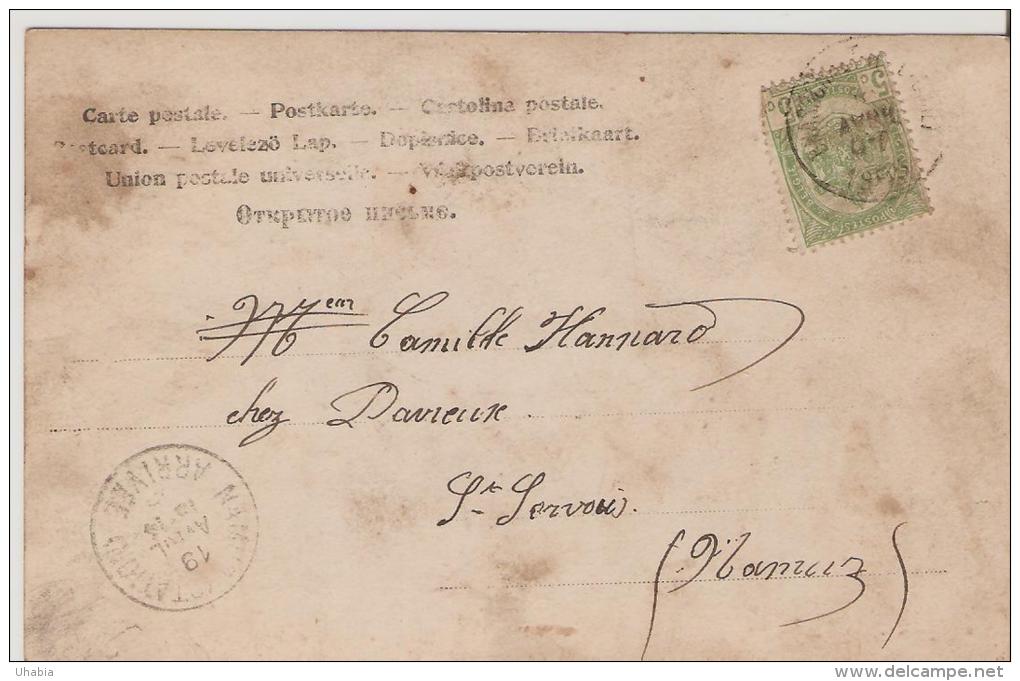 Carte postale. — Postkarte. — Cartolina postale.
Postcard. — Levelező Lap. — Dopisnice. — Briefkaart.
Union postale universelle. — Weltpostverein.
Открытое письмо.
5
POSTES
AVRIL
Mr
Camille Hannard
chez Davreux.
St Servais.
(Namur)
NAMUR (STATION)
ARRIVEE
AVRIL
19
Uhabia
www.delcampe.net